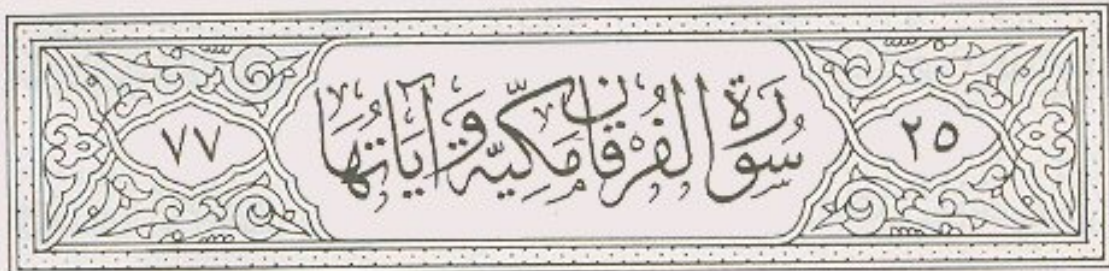 ٢٥ سُورَةُ الْفُرْقَانِ مَكِّيَّةٌ وَآيَاتُهَا ٧٧